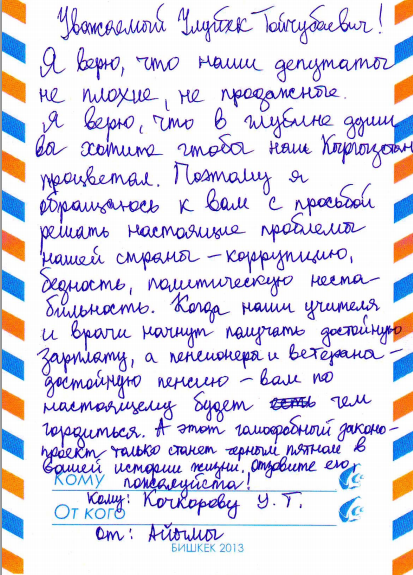 Уважаемый Улугбек Тойчубаевич!
Я верю, что наши депутаты
не плохие, не продажные.
Я верю, что в глубине души
вы хотите чтобы наш Кыргызстан
процветал. Поэтому я
обращаюсь к вам с просьбой
решать настоящие проблемы
нашей страны – коррупцию,
бедность, политическую неста-
бильность. Когда наши учителя
и врачи начнут получать достойную
зарплату, а пенсионеры и ветераны –
достойную пенсию – вам по
настоящему будет чем
гордиться. А этот гомофобный законо-
проект только станет черным пятном в
вашей истории жизни. отзовите его,
пожалуйста!
Кому
Кому: Кочкорову У. Т.
От кого
От: Айымы
БИШКЕК 2013